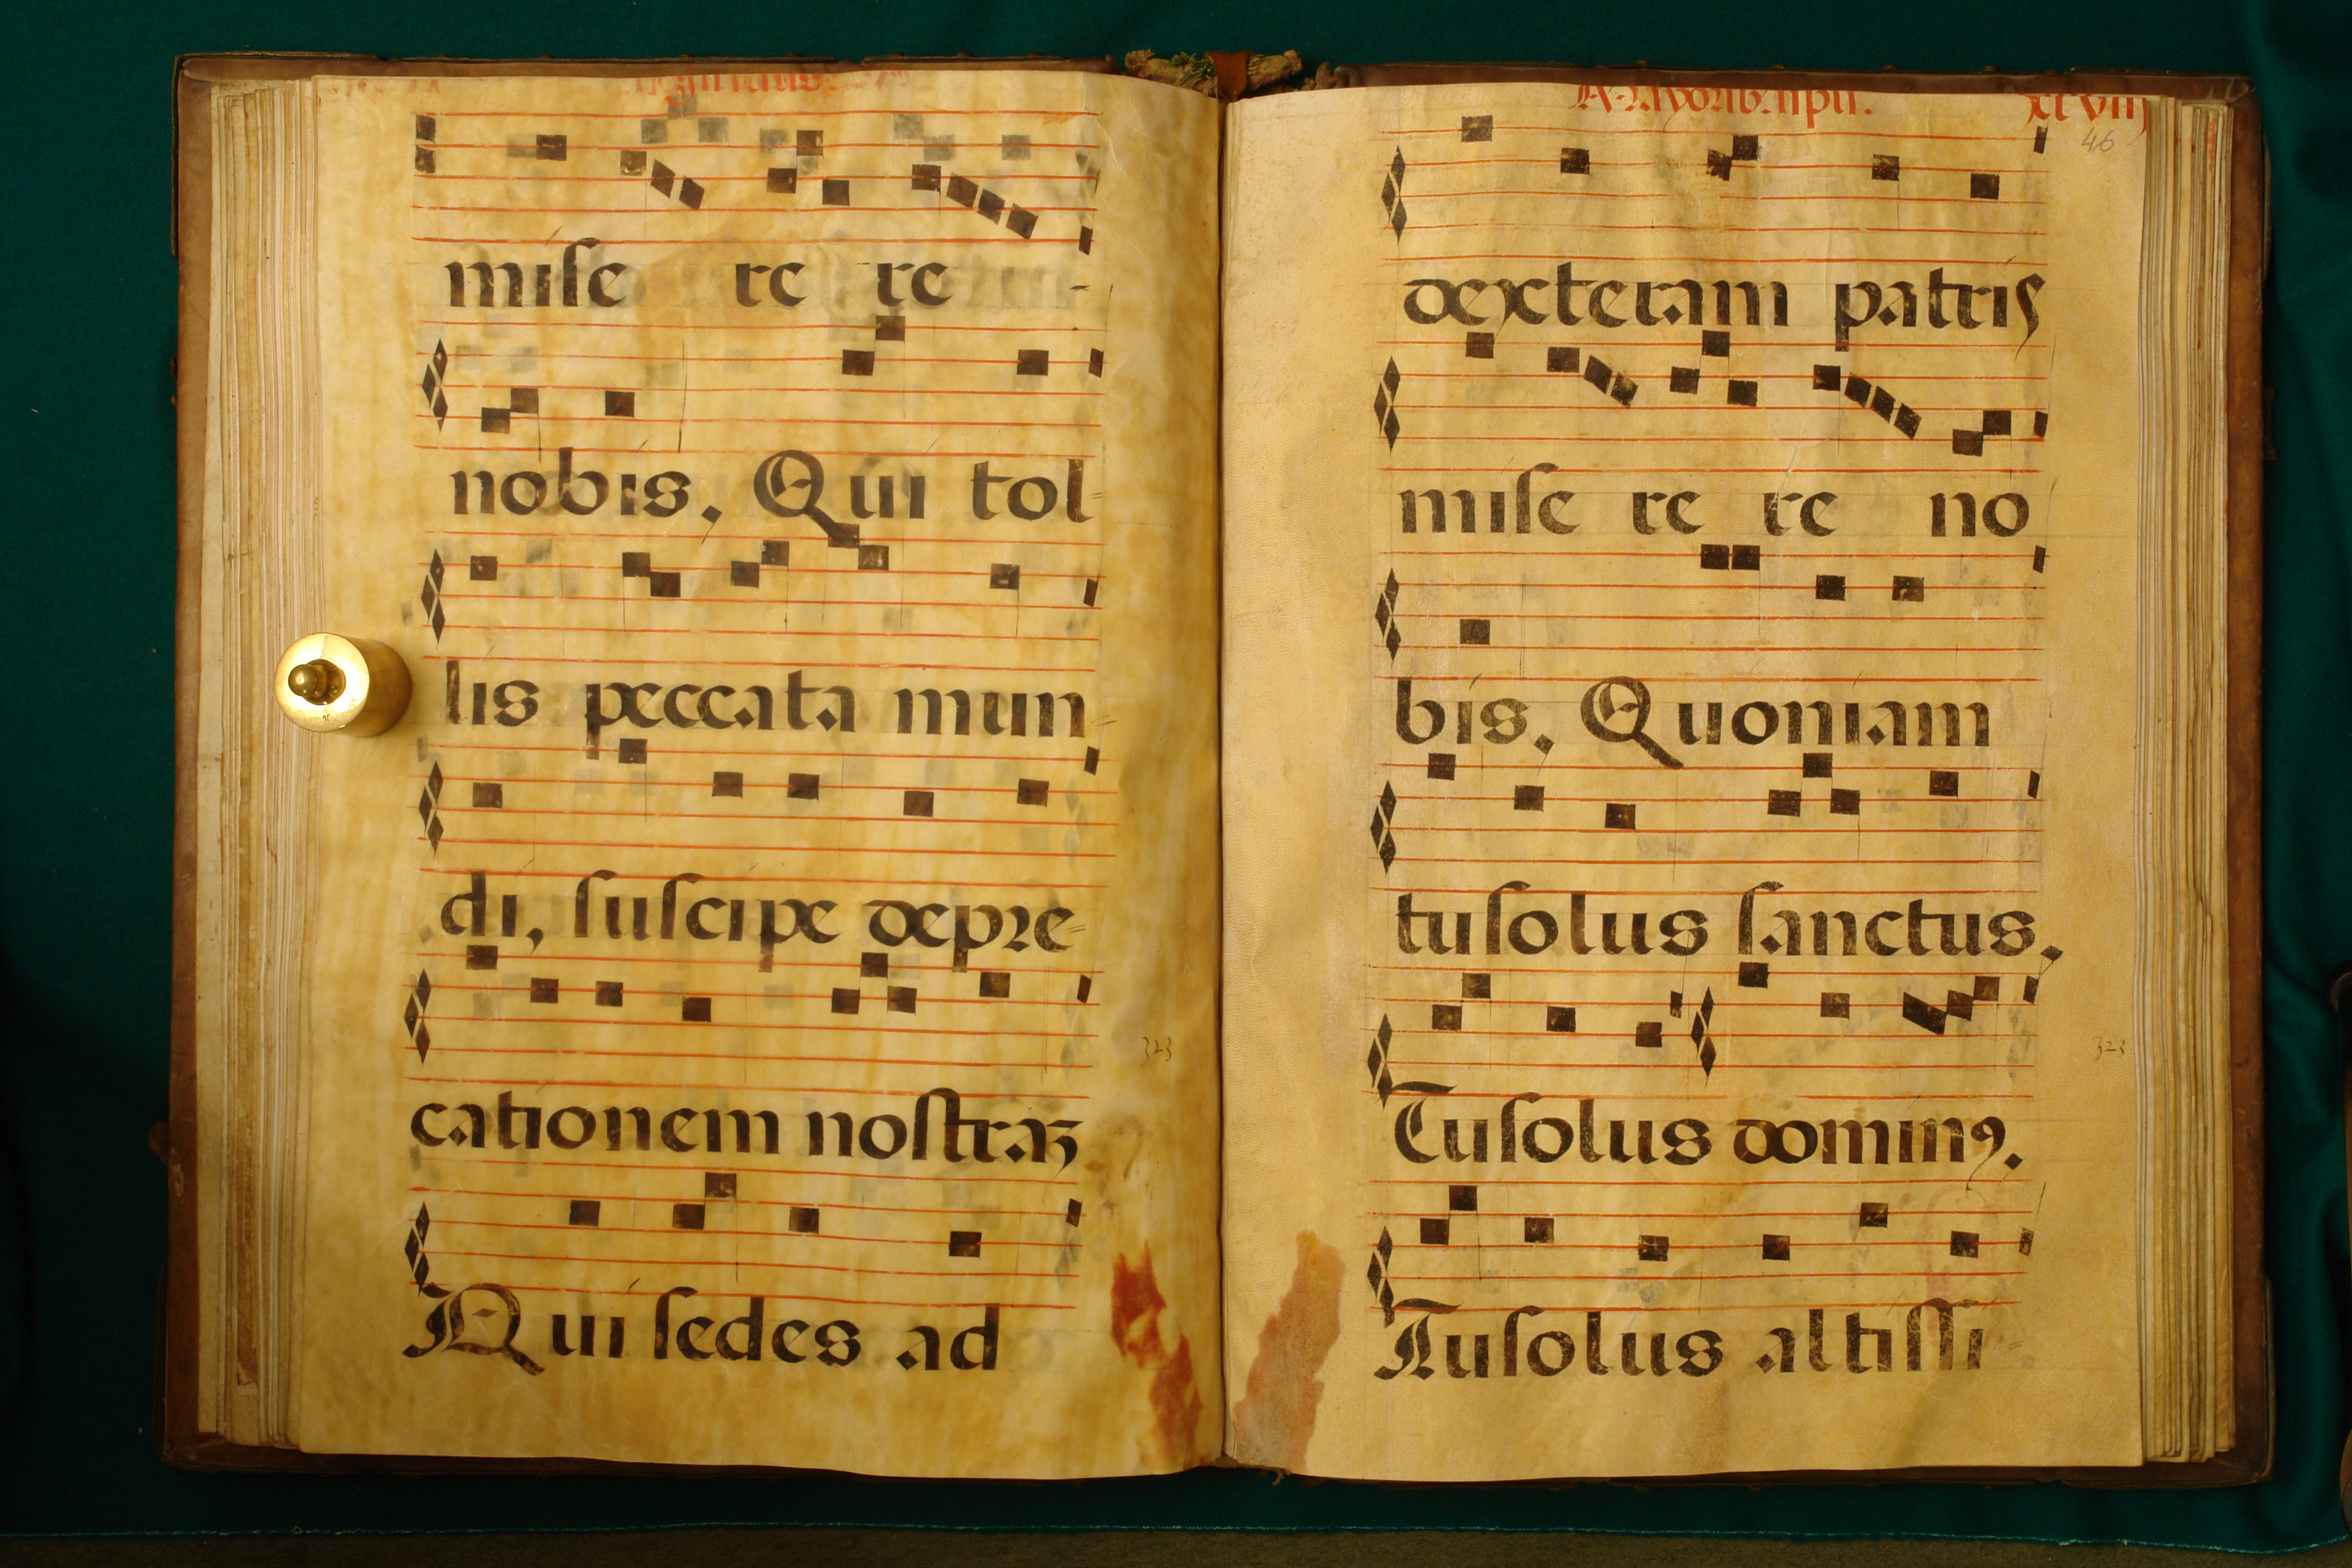 miſe re re -
nobis. Qui tol-
lis peccata mun-
di, ſuſcipe depꝛe-
cationem noſtraꝫ
Qui ſedes ad
46
dexteram patris
miſe re re no
bis. Quoniam
tuſolus ſanctus.
Tuſolus dominꝰ.
Tuſolus altiſſi-
323
323